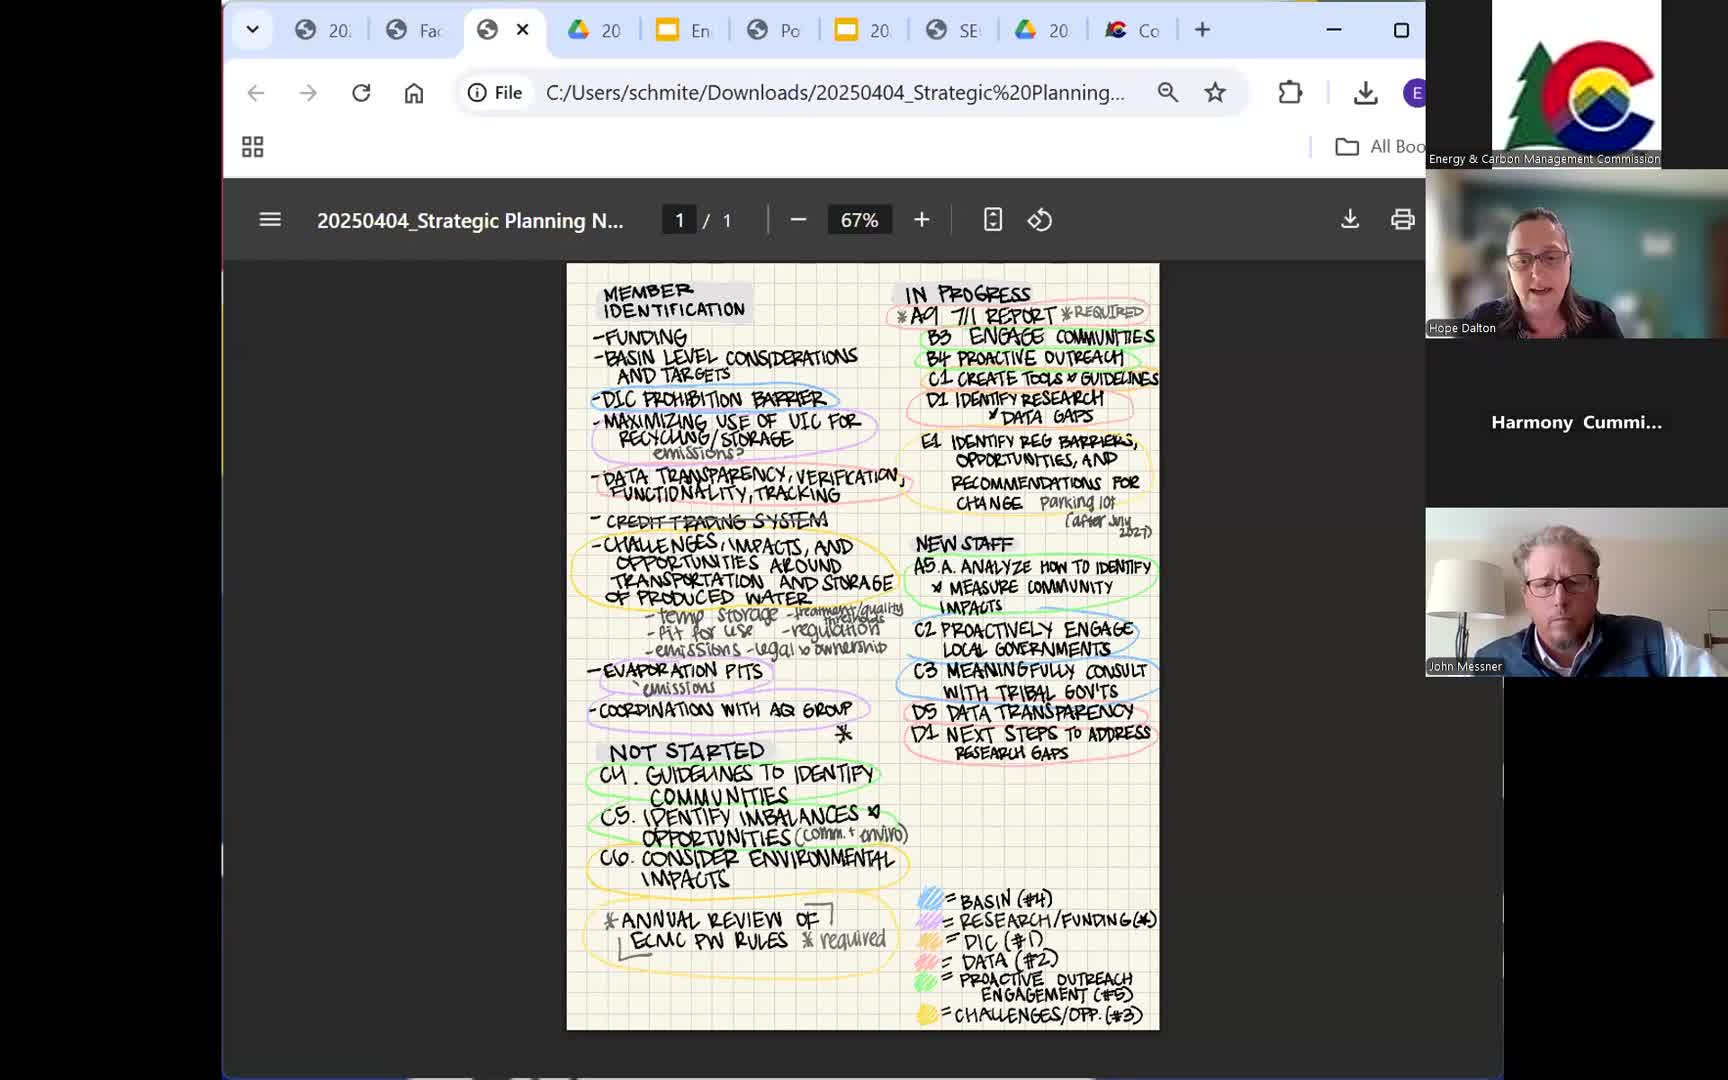 20
Fac
20
En
Po
20
SE
20
Co
File
C:/Users/schmite/Downloads/20250404_Strategic%20Planning...
E
All Boo
20250404_Strategic Planning N...
1 / 1
67%
MEMBER
IDENTIFICATION
- FUNDING
- BASIN LEVEL CONSIDERATIONS
AND TARGETS
- DIC PROHIBITION BARRIER
- MAXIMIZING USE OF UIC FOR
RECYCLING/STORAGE
emissions?
- DATA TRANSPARENCY, VERIFICATION,
FUNCTIONALITY, TRACKING
- CREDIT TRADING SYSTEM
- CHALLENGES, IMPACTS, AND
OPPORTUNITIES AROUND
TRANSPORTATION AND STORAGE
OF PRODUCED WATER
- temp storage - treatment/quality
thresholds
- fit for use - regulation
- emissions - legal & ownership
- EVAPORATION PITS
emissions
- COORDINATION WITH AQ GROUP
*
NOT STARTED
C4. GUIDELINES TO IDENTIFY
COMMUNITIES
C5. IDENTIFY IMBALANCES &
OPPORTUNITIES (comm. + enviro)
C6. CONSIDER ENVIRONMENTAL
IMPACTS
* ANNUAL REVIEW OF
ECMC PW RULES * required
IN PROGRESS
* A9 7/1 REPORT * REQUIRED
B3 ENGAGE COMMUNITIES
B4 PROACTIVE OUTREACH
C1 CREATE TOOLS & GUIDELINES
D1 IDENTIFY RESEARCH
& DATA GAPS
E1 IDENTIFY REG BARRIERS,
OPPORTUNITIES, AND
RECOMMENDATIONS FOR
CHANGE parking lot
(after July
2027)
NEW STAFF
A5.A. ANALYZE HOW TO IDENTIFY
& MEASURE COMMUNITY
IMPACTS
C2 PROACTIVELY ENGAGE
LOCAL GOVERNMENTS
C3 MEANINGFULLY CONSULT
WITH TRIBAL GOV'TS
D5 DATA TRANSPARENCY
D1 NEXT STEPS TO ADDRESS
RESEARCH GAPS
= BASIN (#4)
= RESEARCH/FUNDING (*)
= DIC (#1)
= DATA (#2)
= PROACTIVE OUTREACH
ENGAGEMENT (#5)
= CHALLENGES/OPP. (#3)
Energy & Carbon Management Commission
Hope Dalton
Harmony Cummi...
John Messner